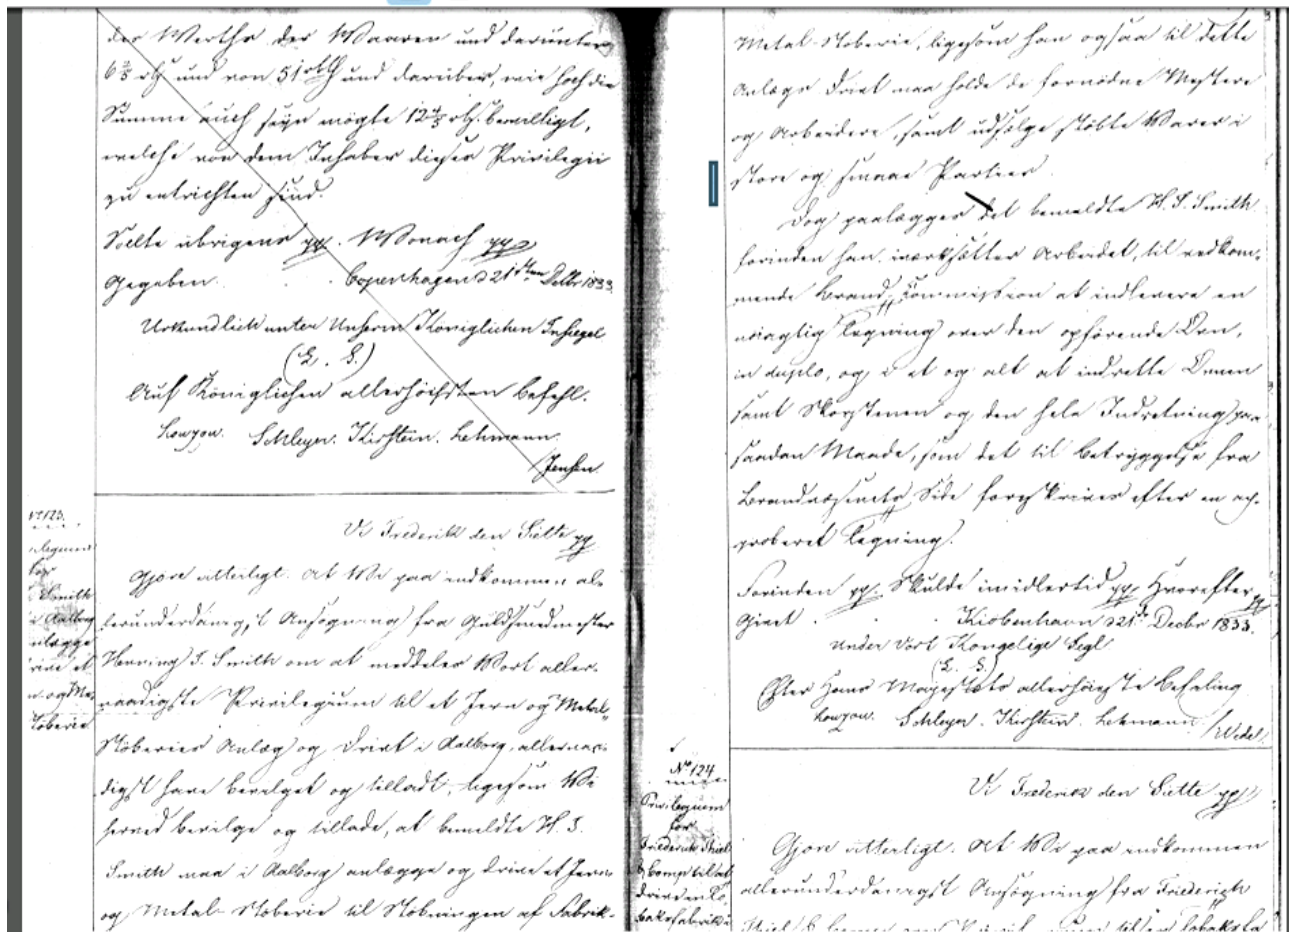 der Werthe der Waaren und darunter
6 2/5 rbß und von 51 rbthlr und darüber, wie hoch die
Summe auch seyn mögte 12 4/5 rbß. bewilligt,
welche von dem Inhaber dieses Privilegii
zu entrichten sind.
Sollte übrigens pp. Wonach pp
Gegeben Copenhagen d 21sten Decbr 1833.
Urkundlich unter Unserm Königlichen Insiegel
(L. S.)
Auf Königlichen allerhöchsten Befehl.
Lowzow. Schleyer. Kirstein. Lehmann.
Jensen
Nº 123.
for
Smith
i Aalborg
anlægge
drive et
og Me-
Støberie
Vi Frederik den Siette pp
Gjøre vitterligt: At Vi paa indkommen al-
lerunderdanigst Ansøgning fra Guldsmedmester
Henning S. Smith om at meddeles Vort aller-
naadigste Privilegium til et Jern og Metal-
Støberies Anlæg og Drivt i Aalborg, allernaa-
digst have bevilget og tilladt, ligesom Vi
herved bevilge og tillade, at bemeldte H. S.
Smith maa i Aalborg anlægge og drive et Jern-
og Metal-Støberie til Støbningen af Fabrik-
Metal-Støberie, ligesom han ogsaa til dette
Anlægs Drivt maa holde de fornødne Mestere
og Arbeidere, samt udsælge støbte Varer i
store og smaae Partier.
Dog paalægges det bemeldte H. S. Smith
forinden han iværksætter Arbeidet, til vedkom-
mende Brand-Commission at indlevere en
nøiagtig Tegning over den opførende Ovn,
in duplo, og i et og alt at indrette Ovnen
samt Skorstenen og den hele Indretning paa
saadan Maade, som det til Betryggelse fra
Brandvæsenets Side foreskrives efter en ap-
proberet Tegning.
Forinden pp. Skulde imidlertid pp Hvorefter pp
Givet Kiøbenhavn d 21de Decbr 1833.
under Vort Kongelige Segl
(L. S.)
Efter Hans Majestæts allerhøieste Befaling
Lowzow. Schleyer. Kirstein. Lehmann.
/Wedel.
Nº 124
Privilegium
for
Friederich Thiel
& Comp til at
drive en To-
baksfabrik i
Vi Frederik den Siette pp
Gjøre vitterligt: At Vi paa indkommen
allerunderdanigst Ansøgning fra Friederich